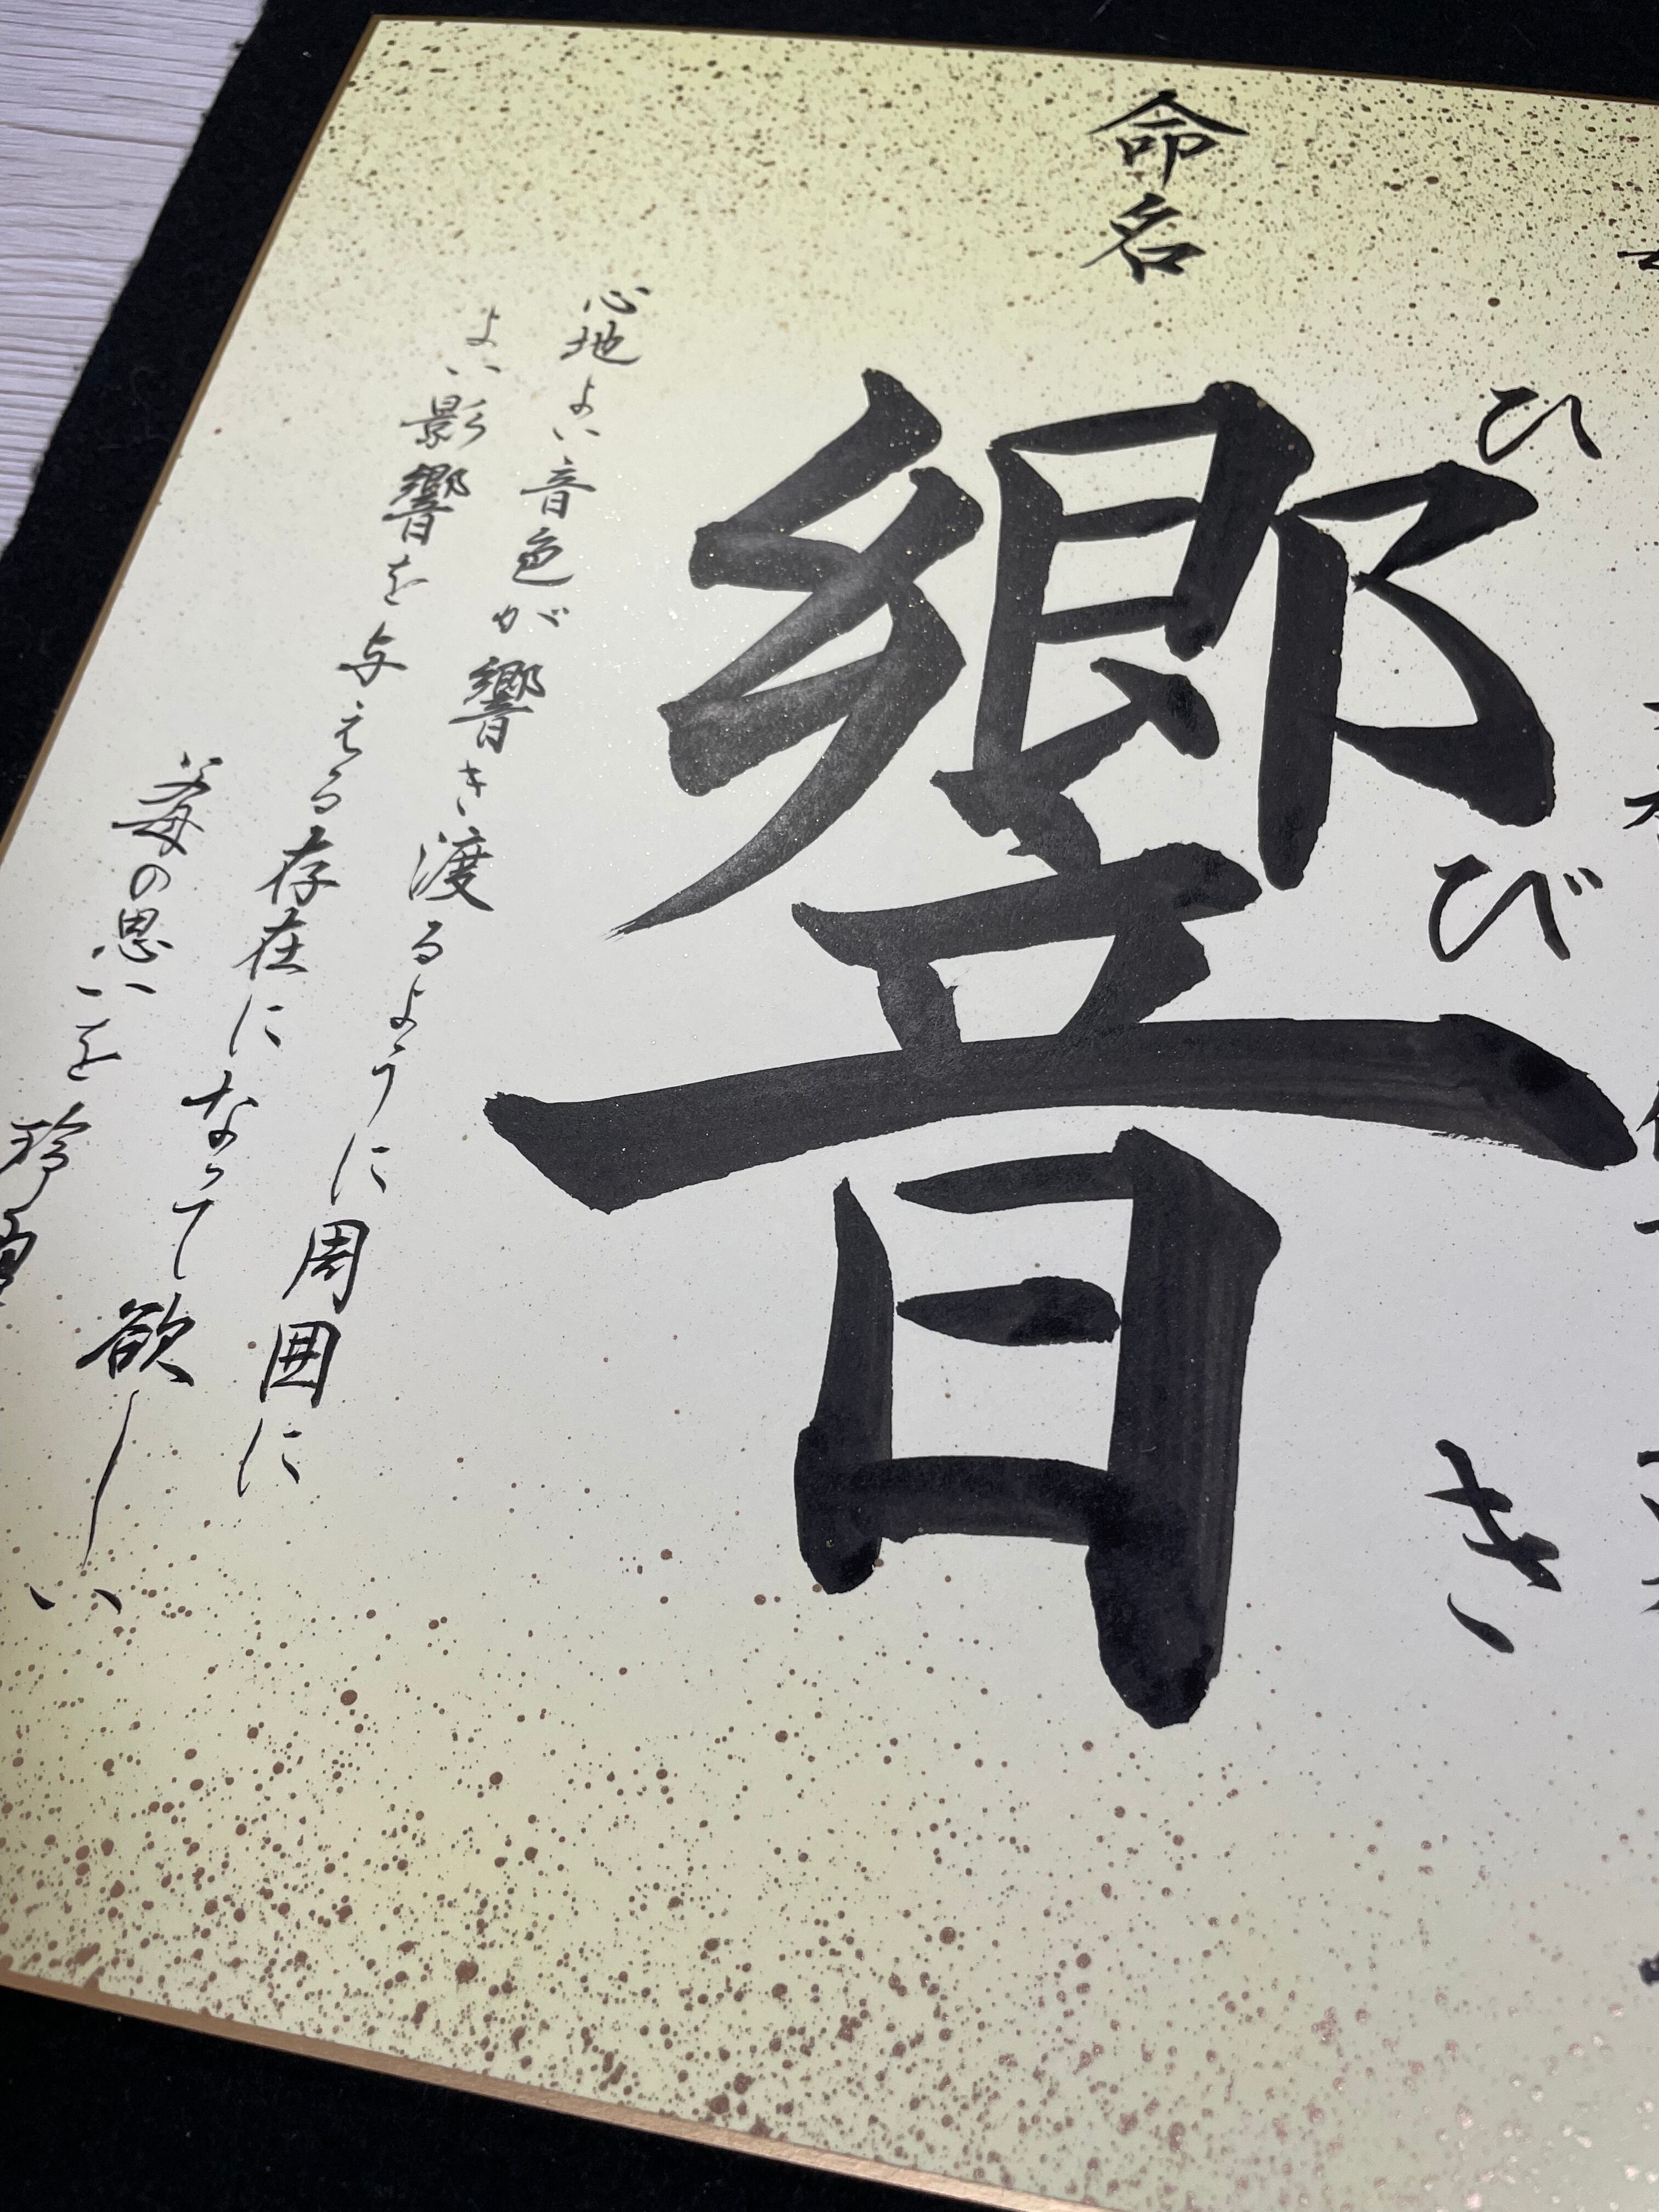 命名
ひびき
響
心地よい音色が響き渡るように周囲に
よい影響を与える存在になって欲しい
の思いを